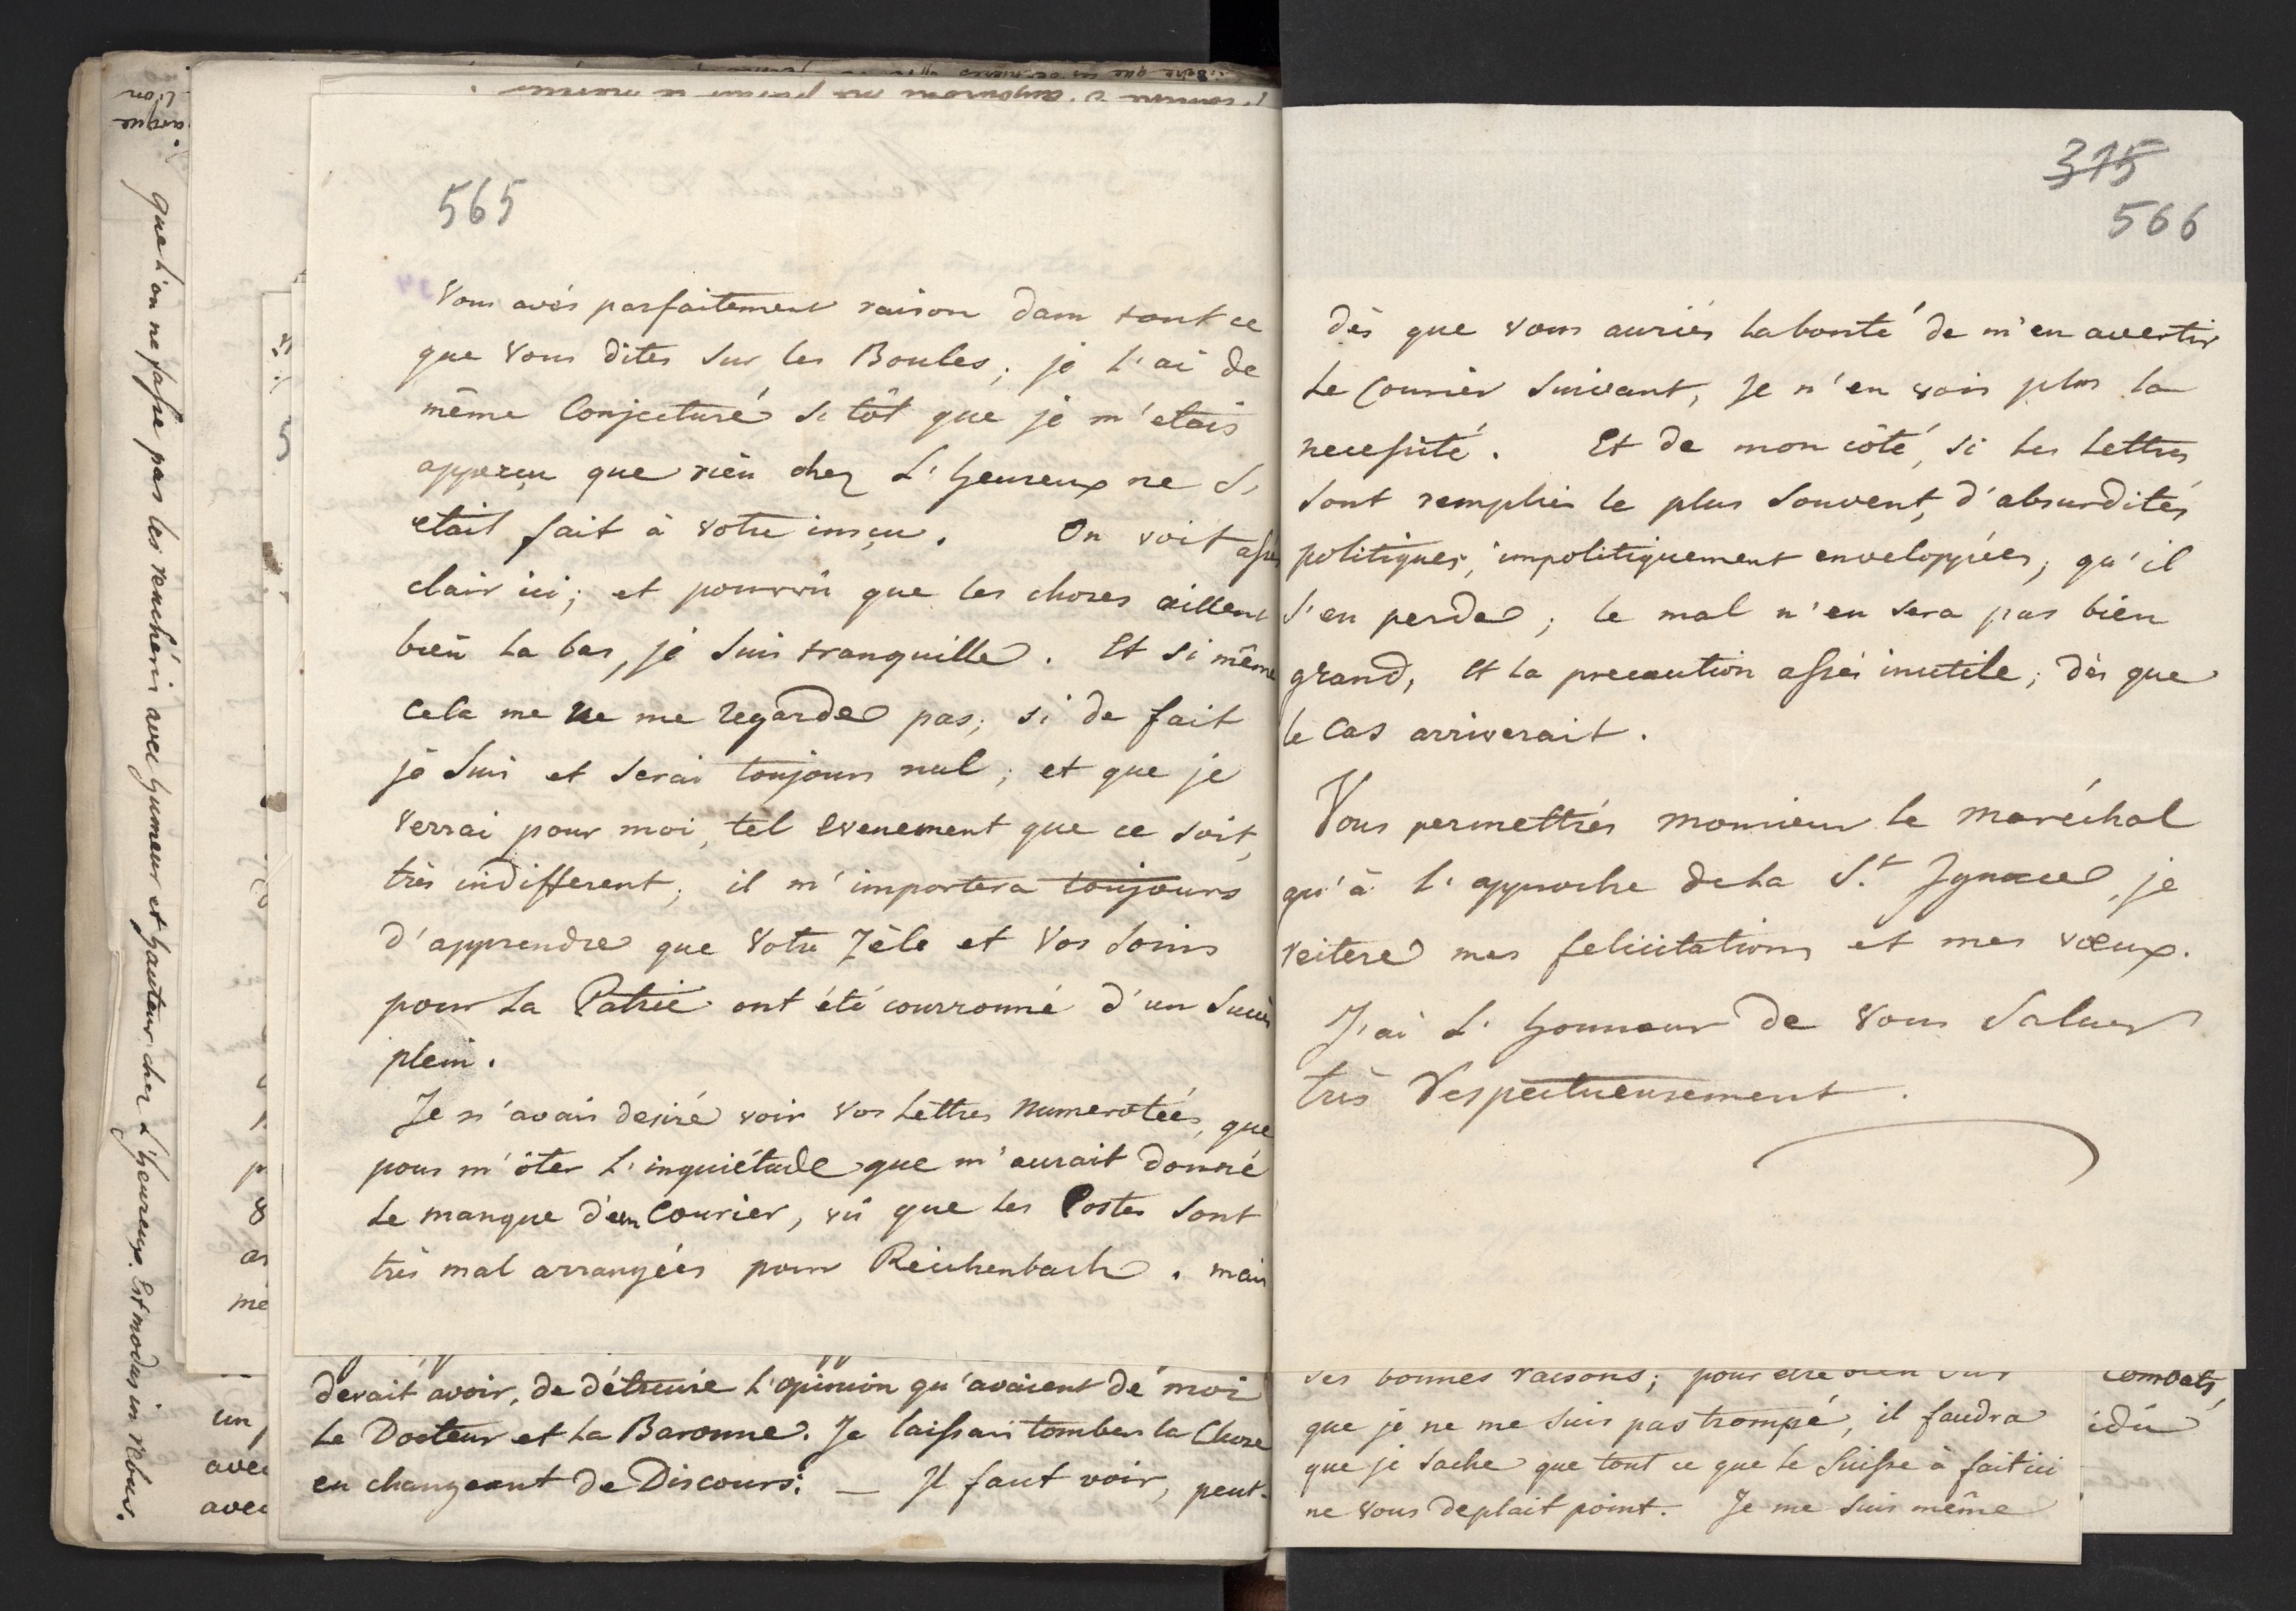 565
Vous avés parfaitement raison dans tout ce
que vous dites sur les Boules; je l'ai de
même Conjecturé si tôt que je m'etais
apperçu que rien chez L'heureux ne s'
etait fait à votre insçu. On voit assés
clair ici; et pourvû que les choses aillent
bien la bas, je suis tranquille. Et si même
cela me ne me regarde pas; si de fait
je suis et serai toujours nul; et que je
verrai pour moi, tel evenement que ce soit,
très indifferent; il m'importera toujours
d'apprendre que votre zèle et vos soins
pour la Patrie ont été courronné d'un succès
plein.
Je n'avais desiré voir vos Lettres numerotées, que
pour m'ôter l'inquiétude que m'aurait donné
le manque d'un Courier, vû que les Postes sont
très mal arrangées pour Reichenbach. mais
375
566
dès que vous auriés la bonté de m'en avertir
le Courier suivant, Je n'en vois plus la
necessité. Et de mon côté, si les Lettres
sont remplies le plus souvent, d'absurdités
politiques, impolitiquement enveloppées, qu'il
s'en perde; le mal n'en sera pas bien
grand, et la precaution assés inutile, dès que
le cas arriverait.
Vous permettrés monsieur le maréchal
qu'à l'approche de la St. Ignace, je
reitere mes felicitations et mes vœux.
J'ai l'honneur de vous saluer
très respectueusement.
devait avoir, de détruire l'opinion qu'avaient de moi
le Docteur et la Baronne. Je laissai tomber la Chose
en changeant de Discours: — Il faut voir, peut-
ses bonnes raisons; pour etre bien sur
que je ne me suis pas trompé, il faudra
que je sache que tout ce que le Suisse à fait ici
ne vous deplait point. Je me suis même
combats,
idû
que l'on ne fasse pas les rencheris avec humeur et hauteur, chez L'heureux. Est modus in rebus.
un
avec
avec
me